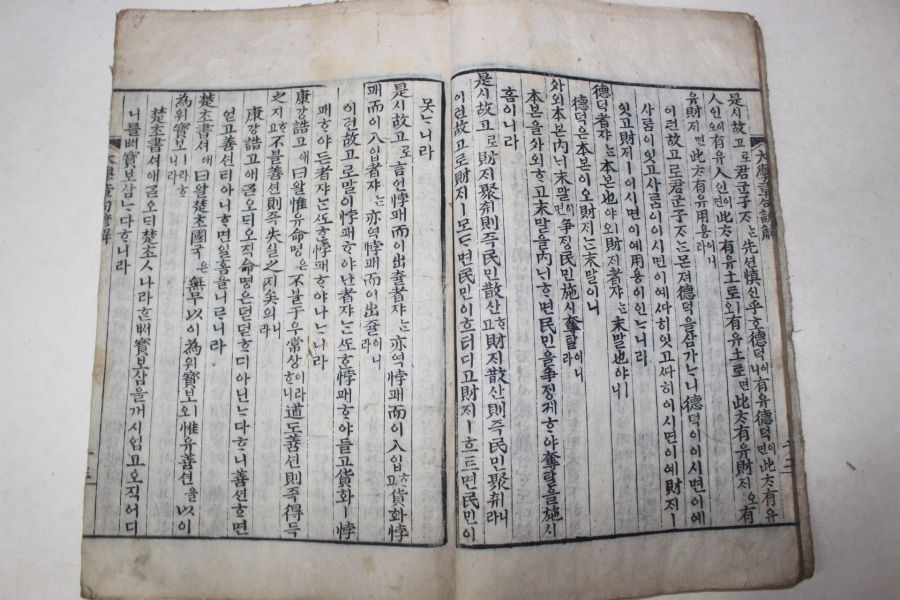 大學章句諺解
是시故고로君군子ᄌᆞᄂᆞᆫ先션慎신乎호德덕이니有유德덕이면此ᄎᆞ有유
人인이오有유人인이면此ᄎᆞ有유土토ㅣ오有유土토ㅣ면此ᄎᆞ有유財ᄌᆡ오有
유財ᄌᆡ면此ᄎᆞ有유用용이니라
이런故고로君군子ᄌᆞᄂᆞᆫ몬져德덕을삼가ᄂᆞ니德덕이이시면이예
사ᄅᆞᆷ이잇고사ᄅᆞᆷ이이시면이예ᄯᅡ히잇고ᄯᅡ히이시면이예財ᄌᆡㅣ
잇고財ᄌᆡㅣ이시면이예用용이인ᄂᆞ니라
德덕者쟈ᄂᆞᆫ本본也야ㅣ오財ᄌᆡ者쟈ᄂᆞᆫ末말也야ㅣ니
德덕은本본이오財ᄌᆡᄂᆞᆫ末말이니
外외本본內ᄂᆡ末말이면爭ᄌᆡᆼ民민施시奪탈이니라
本본을外외ᄒᆞ고末말을內ᄂᆡᄒᆞ면民민을爭ᄌᆡᆼ케ᄒᆞ야奪탈을施시
홈이니라
是시故고로財ᄌᆡ聚취則즉民민散산ᄒᆞ고財ᄌᆡ散산則즉民민聚취니라
이런故고로財ᄌᆡㅣ모ᄃᆞ면民민이흐터디고財ᄌᆡㅣ흐트면民민이
못ᄂᆞ니라
是시故고로言언悖패而이出츌者쟈ᄂᆞᆫ亦역悖패而이入입ᄒᆞ고貨화悖
패而이入입者쟈ᄂᆞᆫ亦역悖패而이出츌이니라
이런故고로말이悖패ᄒᆞ야난者쟈ᄂᆞᆫᄯᅩᄒᆞᆫ悖패ᄒᆞ야들고貨화ㅣ悖
패ᄒᆞ야든者쟈ᄂᆞᆫᄯᅩᄒᆞᆫ悖패ᄒᆞ야나ᄂᆞ니라
康강誥고애曰왈惟유命명은不불于우常상이라ᄒᆞ니道도善션則즉得득
之지ᄒᆞ고不불善션則즉失실之지矣의니라
康강誥고애ᄀᆞᆯ오ᄃᆡ오직命명은덛덛ᄒᆞ디아닌ᄂᆞᆫ다ᄒᆞ니善션ᄒᆞ면
얻고善션티아니ᄒᆞ면일홈을니ᄅᆞ니라
楚초書셔애曰왈楚초國국은無무以이為위寶보ㅣ오惟유善션을以이
為위寶보ㅣ라ᄒᆞ니라
楚초書셔애ᄀᆞᆯ오ᄃᆡ楚초ㅅ나라흔ᄡᅥ寶보삼을꺼시업고오직어디
니를ᄡᅥ寶보삼ᄂᆞᆫ다ᄒᆞ니라